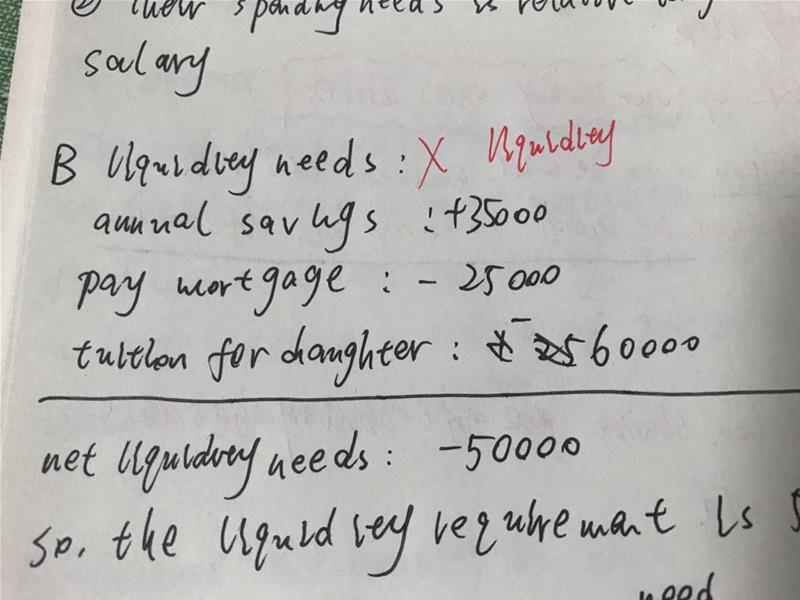 ② Their spending needs is relative
salary
B liquidity needs : X liquidity
annual savings : +35000
pay mortgage : - 25000
tuition for daughter : - 60000
net liquidity needs : -50000
so. the liquidity requirement is
need